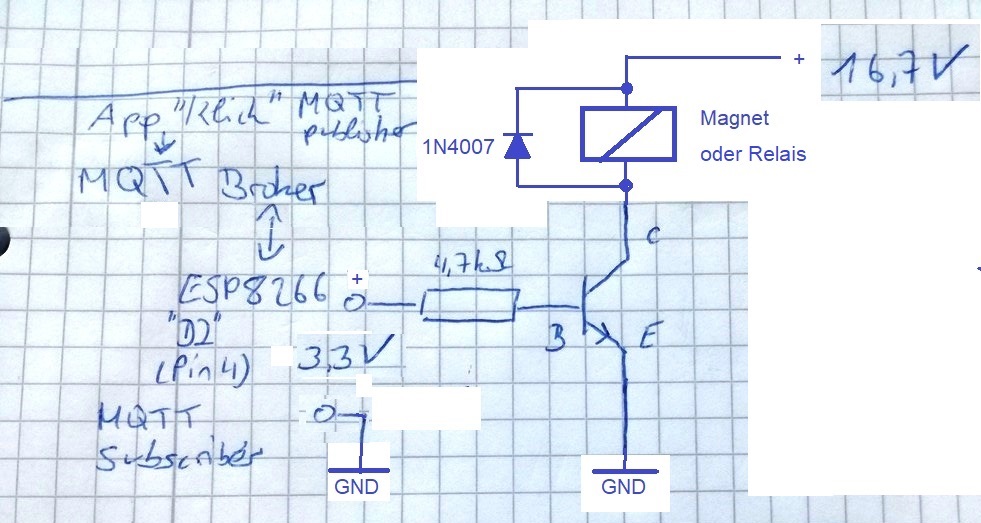 16,7V
+
App "Klick" MQTT
publisher
Magnet
oder Relais
1N4007
MQTT Broker
C
4,7kΩ
ESP8266
+
"D2"
(Pin 4)
3,3V
B
E
MQTT
Subscriber
GND
GND